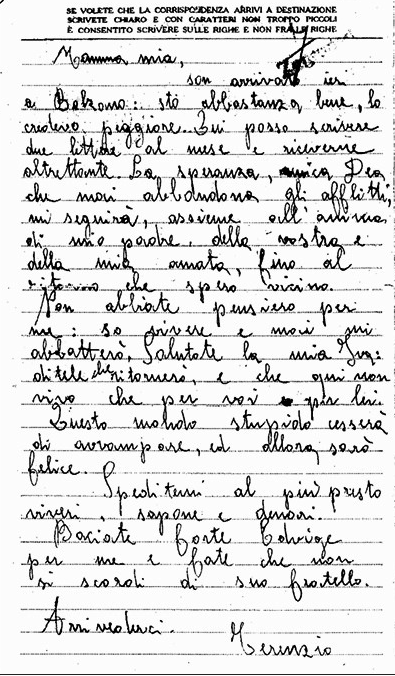 SE VOLETE CHE LA CORRISPONDENZA ARRIVI A DESTINAZIONE
SCRIVETE CHIARO E CON CARATTERI NON TROPPO PICCOLI
È CONSENTITO SCRIVERE SULLE RIGHE E NON FRA LE RIGHE
Mamma mia,
son arrivato ieri
a Bolzano: stò abbastanza bene, lo
credevo peggiore. Qui posso scrivere
due lettere al mese e riceverne
altrettante. La speranza, unica Dea
che mai abbandona gli afflitti,
mi seguirà, assieme all'anima
di mio padre, della vostra e
della mia amata, fino al
ritorno che spero vicino.
Non abbiate pensiero per
me: so vivere e mai mi
abbatterò. Salutate la mia
ditele che ritornerò, e che qui non
vivo che per voi e per lei.
Questo mondo stupido cesserà
di avvampare, ed allora sarò
felice.
Speditemi al più presto
viveri, sapone e denari.
Baciate forte Edvige
per me e fate che non
si scordi di suo fratello.
Arrivederci.
Terenzio